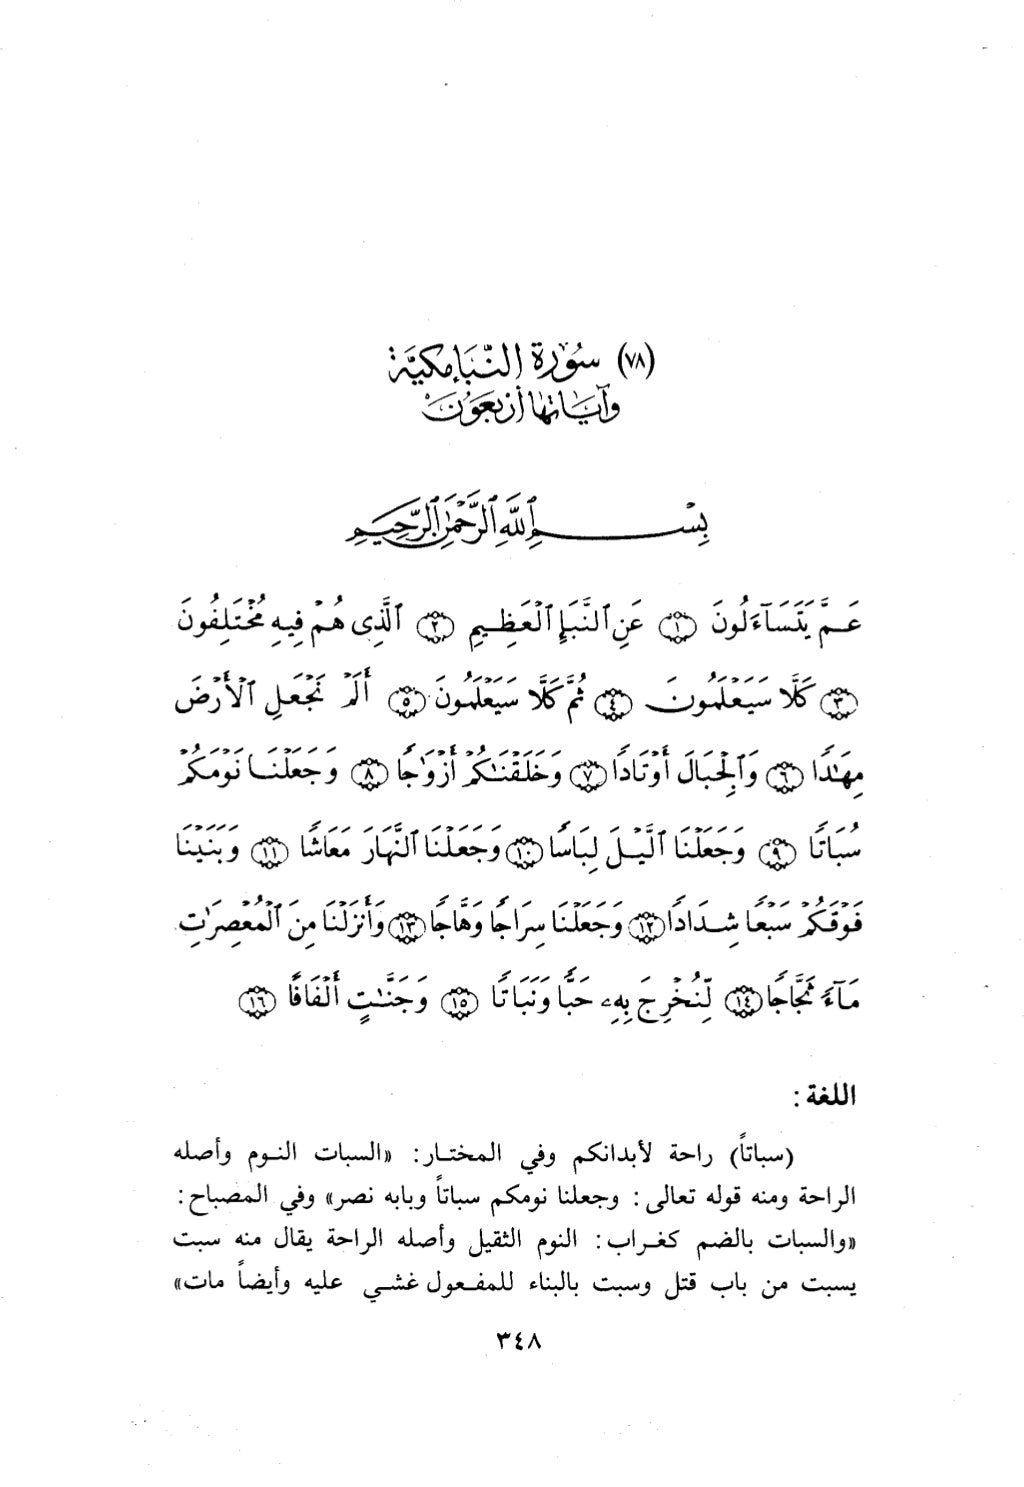 (٧٨) سُورَة النَّبَإِ مَكِّيَّة
وَآيَاتُهَا أَرْبَعُونَ
بِسْمِ ٱللَّهِ ٱلرَّحْمَٰنِ ٱلرَّحِيمِ
عَمَّ يَتَسَآءَلُونَ ﴿١﴾ عَنِ ٱلنَّبَإِ ٱلْعَظِيمِ ﴿٢﴾ ٱلَّذِى هُمْ فِيهِ مُخْتَلِفُونَ
﴿٣﴾ كَلَّا سَيَعْلَمُونَ ﴿٤﴾ ثُمَّ كَلَّا سَيَعْلَمُونَ ﴿٥﴾ أَلَمْ نَجْعَلِ ٱلْأَرْضَ
مِهَٰدًا ﴿٦﴾ وَٱلْجِبَالَ أَوْتَادًا ﴿٧﴾ وَخَلَقْنَٰكُمْ أَزْوَٰجًا ﴿٨﴾ وَجَعَلْنَا نَوْمَكُمْ
سُبَاتًا ﴿٩﴾ وَجَعَلْنَا ٱلَّيْلَ لِبَاسًا ﴿١٠﴾ وَجَعَلْنَا ٱلنَّهَارَ مَعَاشًا ﴿١١﴾ وَبَنَيْنَا
فَوْقَكُمْ سَبْعًا شِدَادًا ﴿١٢﴾ وَجَعَلْنَا سِرَاجًا وَهَّاجًا ﴿١٣﴾ وَأَنزَلْنَا مِنَ ٱلْمُعْصِرَٰتِ
مَآءً ثَجَّاجًا ﴿١٤﴾ لِّنُخْرِجَ بِهِۦ حَبًّا وَنَبَاتًا ﴿١٥﴾ وَجَنَّٰتٍ أَلْفَافًا ﴿١٦﴾
اللغة :
(سباتاً) راحة لأبدانكم وفي المختار: «السبات النوم وأصله
الراحة ومنه قوله تعالى : وجعلنا نومكم سباتاً وبابه نصر» وفي المصباح :
«والسبات بالضم كغراب : النوم الثقيل وأصله الراحة يقال منه سبت
يسبت من باب قتل وسبت بالبناء للمفعول غشي عليه وأيضاً مات»
٣٤٨